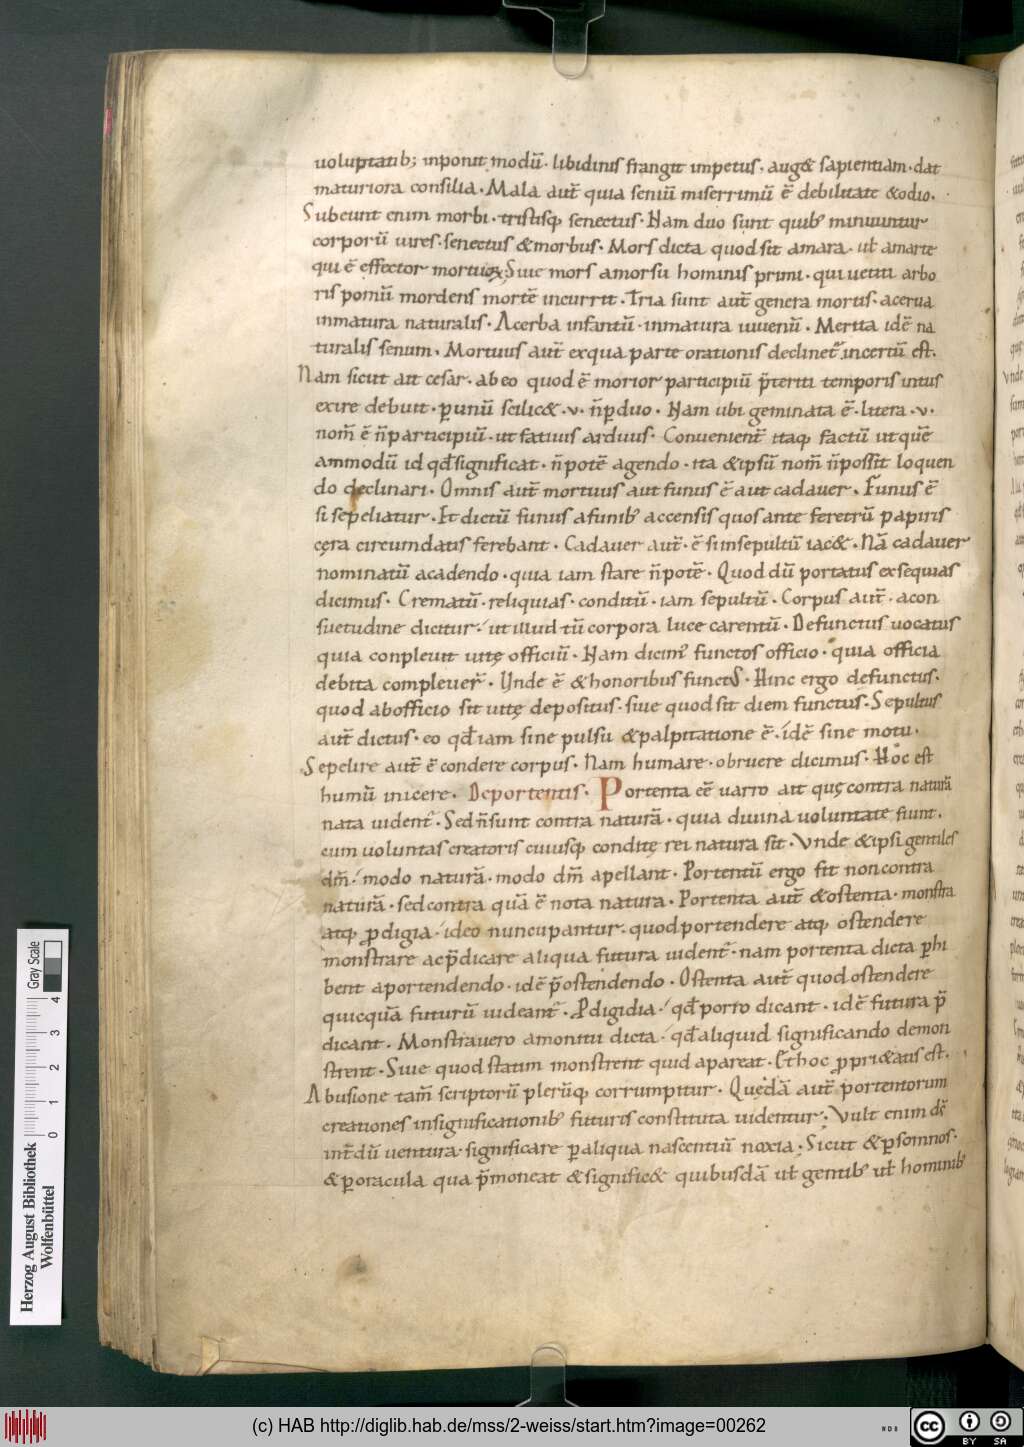 uoluptatib; inponit modū. libidinis frangit impetus. aug& sapientiam. dat
maturiora consilia. Mala aut̄ quia seniū miserrimū ē debilitate &odio.
Subeunt enim morbi. tristisq; senectus. Nam duo sunt quib; minuuntur
corporū uires. senectus &morbus. Mors dicta quod sit amara. ut̵ amarte
qui ē effector mortuoꝝ. Siue mors amorsu hominis primi. qui uetiti arbo
ris pomū mordens mortē incurrit. Tria sunt aut̄ genera mortis. acerua
inmatura naturalis. Acerba infantū. inmatura iuuenū. Merita idē na
turalis senum. Mortuus aut̄ exqua parte orationis declinet᷑ incertū est.
Nam sicut ait cesar. abeo quod ē morior participiū p̄teriti temporis intus
exire debuit. ꝑunū scilic&. v. n̄ꝑduo. Nam ubi geminata ē. litera. v.
nom̄ ē n̄participiū. ut fatuus arduus. Conuenient᷑ itaq; factū ut quē
ammodū id qd̄significat. n̄potē agendo. ita &ipsū nom̄ n̄possit loquen
do declinari. Omnis aut̄ mortuus aut funus ē aut cadauer. Funus ē
si sepeliatur. Et dictū funus afunib; accensis quos ante feretrū papiris
cęra circumdatis ferebant. Cadauer aut̄. ē sīinsepultū iac&. Nā cadauer
nominatū acadendo. quia iam stare n̄potē. Quod dū portatus exsequias
dicimus. Crematū. reliquias. conditū. iam sepultū. Corpus aut̄. acon
suetudine dicitur. ut illud tū corpora luce carentū. Defunctus uocatus
quia conpleuit uitę officiū. Nam dicim᷒ functos officio. quia officia
debita compleuer̄. Unde ē &honoribus functus. Hinc ergo defunctus.
quod abofficio sit uitę depositus. siue quod sit diem functus. Sepultus
aut̄ dictus. eo qd̄iam sine pulsu &palpitatione ē. idē sine motu.
Sepelire aut̄ ē condere corpus. Nam humare. obruere dicimus. Hoc est
humū inicere. Deportentis. Portenta eē uarro ait quę contra naturā
nata uident᷑. Sed n̄sunt contra naturā. quia diuina uoluntate fiunt.
cum uoluntas creatoris cuiusq; conditę rei natura sit. Vnde &ipsi gentiles
dm̄. modo naturā. modo dm̄ apellant. Portentū ergo fit noncontra
naturā. sed contra quā ē nota natura. Portenta aut̄ &ostenta. monstra
atq; ꝓdigia. ideo nuncupantur. quod portendere atq; ostendere
monstrare acp̄dicare aliqua futura uident᷑. nam portenta dicta ꝑhi
bent aportendendo. idē p̄ostendendo. Ostenta aut̄ quod ostendere
quicquā futurū uideant᷑. Ꝓdigidia. qd̄porro dicant. idē futura p̄
dicant. Monstrauero amonitu dicta. qd̄aliquid significando demon
strent. Siue quod statim monstrent quid apareat. Ethoc ꝓpri&atis est.
Abusione tam̄ scriptorū plerūq; corrumpitur. Quędā aut̄ portentorum
creationes insignificationib; futuris constituta uidentur. Vult enim ds̄
int̄dū uentura. significare ꝑaliqua nascentiū noxia. Sicut &ꝑsomnos.
&ꝑoracula qua p̄moneat &signific& quibusdā ut̵ gentib; ut̵ hominib;
Herzog August Bibliothek
Wolfenbüttel
0 1 2 3 4
Gray Scale
(c) HAB http://diglib.hab.de/mss/2-weiss/start.htm?image=00262
cc BY SA